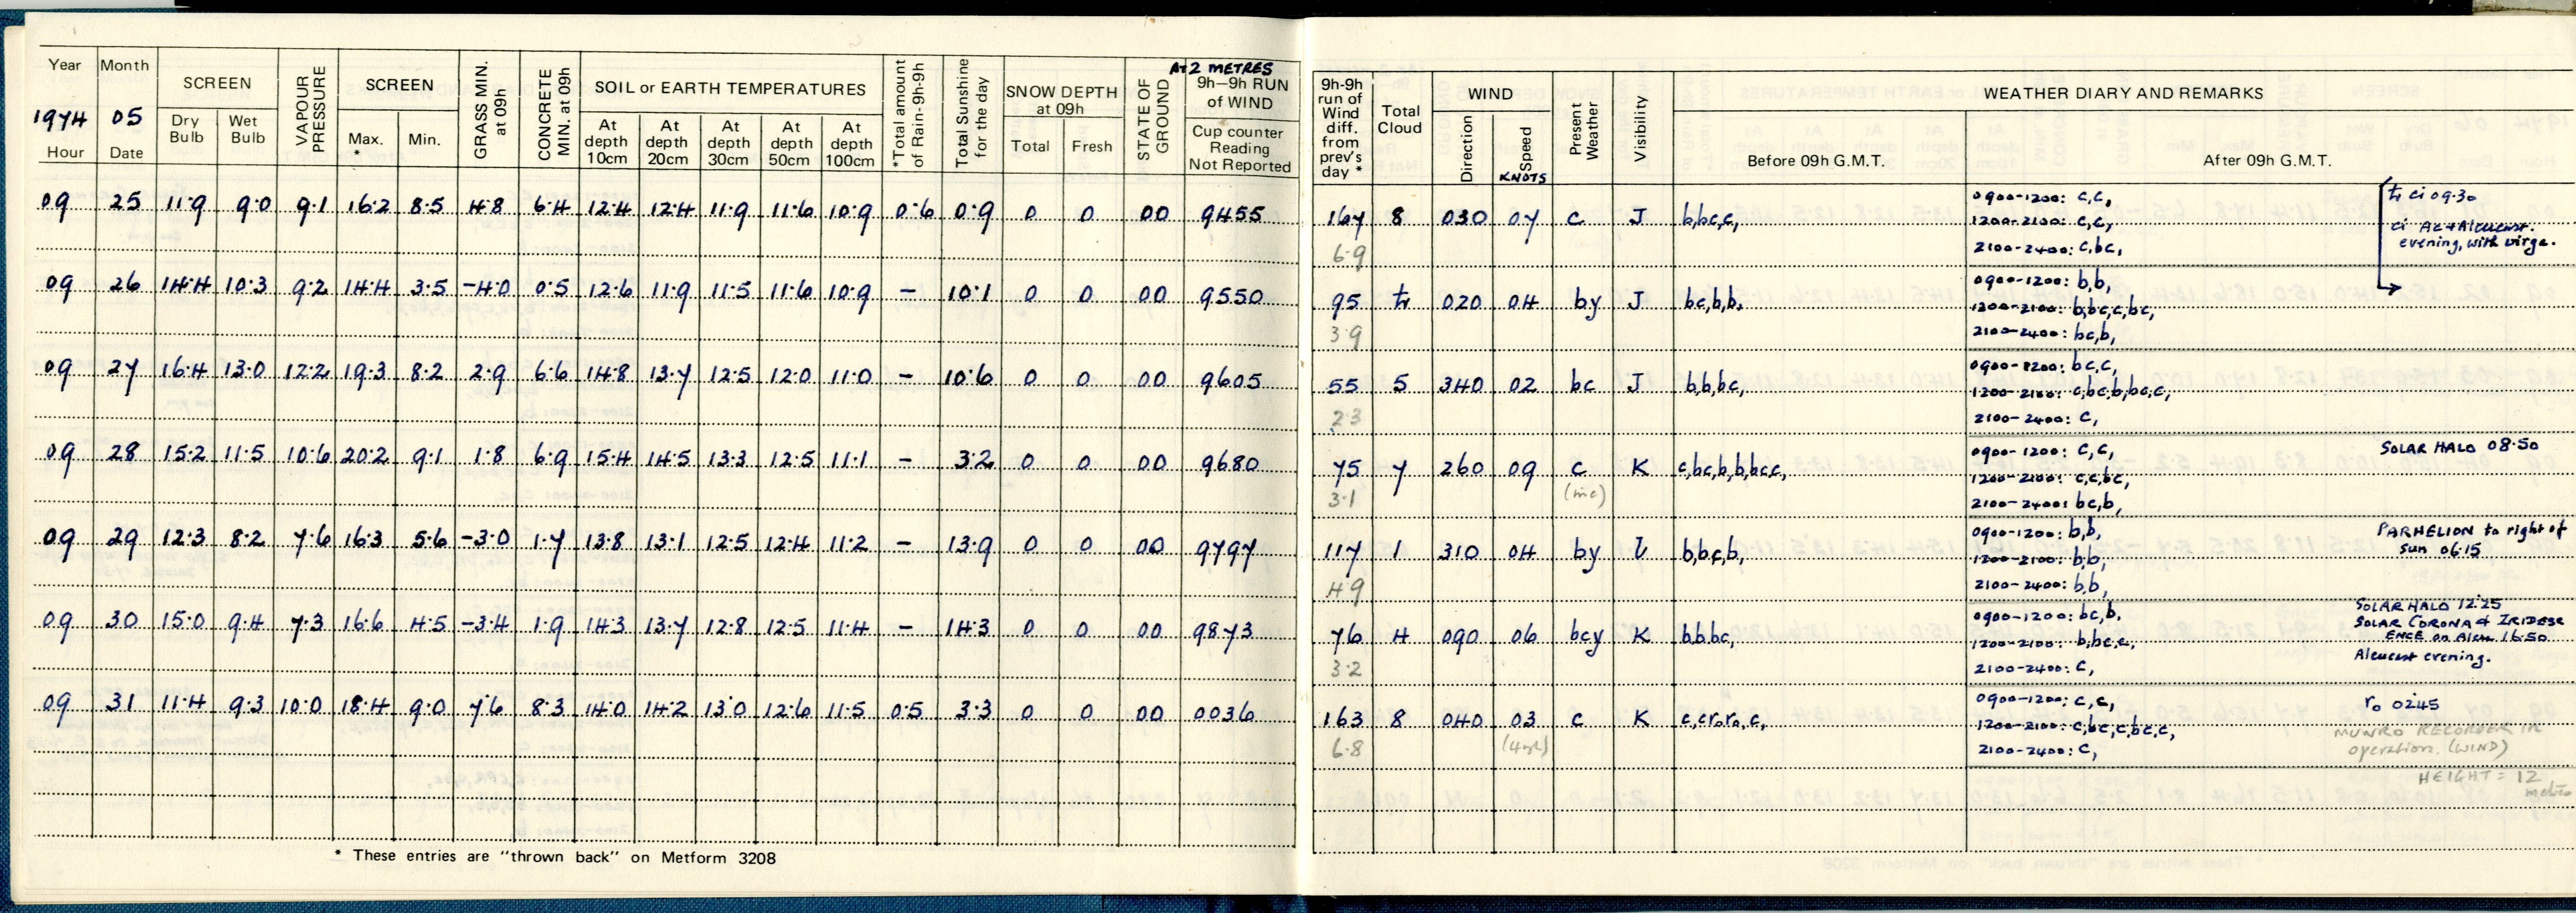 AT 2 METRES
Year Month SCREEN VAPOUR PRESSURE SCREEN GRASS MIN. at 09h CONCRETE MIN. at 09h SOIL or EARTH TEMPERATURES *Total amount of Rain-9h-9h Total Sunshine for the day SNOW DEPTH at 09h STATE OF GROUND 9h–9h RUN of WIND
1974 05 Dry Bulb Wet Bulb Max. * Min. At depth 10cm At depth 20cm At depth 30cm At depth 50cm At depth 100cm Total Fresh Cup counter Reading Not Reported
Hour Date
09 25 11.9 9.0 9.1 16.2 8.5 4.8 6.4 12.4 12.4 11.9 11.6 10.9 0.6 0.9 0 0 00 9455
09 26 14.4 10.3 9.2 14.4 3.5 -4.0 0.5 12.6 11.9 11.5 11.6 10.9 – 10.1 0 0 00 9550
09 27 16.4 13.0 12.2 19.3 8.2 2.9 6.6 14.8 13.7 12.5 12.0 11.0 – 10.6 0 0 00 9605
09 28 15.2 11.5 10.6 20.2 9.1 1.8 6.9 15.4 14.5 13.3 12.5 11.1 – 3.2 0 0 00 9680
09 29 12.3 8.2 7.6 16.3 5.6 -3.0 1.7 13.8 13.1 12.5 12.4 11.2 – 13.9 0 0 00 9797
09 30 15.0 9.4 7.3 16.6 4.5 -3.4 1.9 14.3 13.7 12.8 12.5 11.4 – 14.3 0 0 00 9873
09 31 11.4 9.3 10.0 18.4 9.0 7.6 8.3 14.0 14.2 13.0 12.6 11.5 0.5 3.3 0 0 00 0036
* These entries are "thrown back" on Metform 3208
9h-9h run of Wind diff. from prev's day * Total Cloud WIND Present Weather Visibility WEATHER DIARY AND REMARKS
Direction Speed KNOTS Before 09h G.M.T. After 09h G.M.T.
167 8 030 07 c J b,bc,c, 0900-1200: c,c, tr ci 09.30
1200-2100: c,c, ci Ac + Alcucast.
6.9 2100-2400: c,bc, evening, with virga.
95 tr 020 04 by J bc,b,b, 0900-1200: b,b,
1200-2100: b,bc,c,bc,
3.9 2100-2400: bc,b,
55 5 340 02 bc J b,b,bc, 0900-1200: bc,c,
1200-2100: c,bc,b,bc,c,
2.3 2100-2400: c,
75 7 260 09 c K c,bc,b,b,bc,c, 0900-1200: c,c, SOLAR HALO 08.50
1200-2100: c,c,bc,
3.1 2100-2400: bc,b,
117 1 310 04 by b,bc,b, 0900-1200: b,b, PARHELION to right of
1200-2100: b,b, sun 06.15
4.9 2100-2400: b,b,
76 4 090 06 bcy K b,b,bc, 0900-1200: bc,b, SOLAR HALO 12.25
SOLAR CORONA & IRIDESC
1200-2100: b,bc,c, ENCE on Alcu 16.50
3.2 2100-2400: c, Alcucast evening.
163 8 040 03 c K c,cro,ro,c, 0900-1200: c,c, ro 0245
1200-2100: c,bc,c,bc,c, MUNRO RECORDER IN
6.8 2100-2400: c, operation. (WIND)
HEIGHT = 12
metres